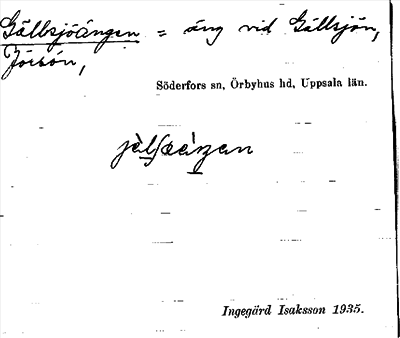 Gällsjöängen = äng vid Gällsjön,
Jörsön,
Söderfors sn, Örbyhus hd, Uppsala län.
Ingegärd Isaksson 1935.